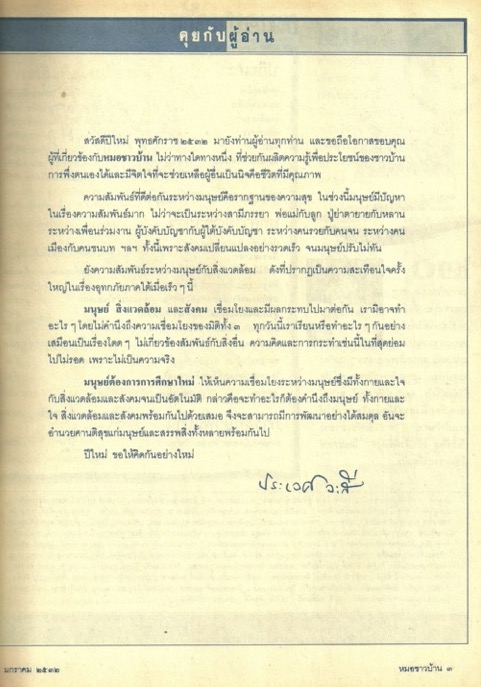 คุยกับผู้อ่าน
สวัสดีปีใหม่ พุทธศักราช ๒๕๓๒ มายังท่านผู้อ่านทุกท่าน และขอถือโอกาสขอบคุณ
ผู้ที่เกี่ยวข้องกับหมอชาวบ้าน ไม่ว่าทางใดทางหนึ่ง ที่ช่วยกันผลิตความรู้เพื่อประโยชน์ของชาวบ้าน
การพึ่งตนเองได้และมีจิตใจที่จะช่วยเหลือผู้อื่นเป็นนิจคือชีวิตที่มีคุณภาพ
ความสัมพันธ์ที่ดีต่อกันระหว่างมนุษย์คือรากฐานของความสุข ในช่วงนี้มนุษย์มีปัญหา
ในเรื่องความสัมพันธ์มาก ไม่ว่าจะเป็นระหว่างสามีภรรยา พ่อแม่กับลูก ปู่ย่าตายายกับหลาน
ระหว่างเพื่อนร่วมงาน ผู้บังคับบัญชากับผู้ใต้บังคับบัญชา ระหว่างคนรวยกับคนจน ระหว่างคน
เมืองกับคนชนบท ฯลฯ ทั้งนี้เพราะสังคมเปลี่ยนแปลงอย่างรวดเร็ว จนมนุษย์ปรับไม่ทัน
ยังความสัมพันธ์ระหว่างมนุษย์กับสิ่งแวดล้อม ดังที่ปรากฏเป็นความสะเทือนใจครั้ง
ใหญ่ในเรื่องอุทกภัยภาคใต้เมื่อเร็ว ๆ นี้
มนุษย์ สิ่งแวดล้อม และสังคม เชื่อมโยงและมีผลกระทบไปมาต่อกัน เรามิอาจทำ
อะไร ๆ โดยไม่คำนึงถึงความเชื่อมโยงของมิติทั้ง ๓ ทุกวันนี้เราเรียนหรือทำอะไร ๆ กันอย่าง
เสมือนเป็นเรื่องโดด ๆ ไม่เกี่ยวข้องสัมพันธ์กับสิ่งอื่น ความคิดและการกระทำเช่นนี้ในที่สุดย่อม
ไปไม่รอด เพราะไม่เป็นความจริง
มนุษย์ต้องการการศึกษาใหม่ ให้เห็นความเชื่อมโยงระหว่างมนุษย์ซึ่งมีทั้งกายและใจ
กับสิ่งแวดล้อมและสังคมจนเป็นอัตโนมัติ กล่าวคือจะทำอะไรก็ต้องคำนึงถึงมนุษย์ ทั้งกายและ
ใจ สิ่งแวดล้อมและสังคมพร้อมกันไปด้วยเสมอ จึงจะสามารถมีการพัฒนาอย่างได้สมดุล อันจะ
อำนวยศานติสุขแก่มนุษย์และสรรพสิ่งทั้งหลายพร้อมกันไป
ปีใหม่ ขอให้คิดกันอย่างใหม่
ประเวศ วะสี
มกราคม ๒๕๓๒
หมอชาวบ้าน ๓